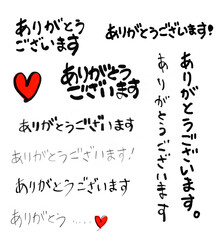 ありがとう
ございます
ありがとうございます!
ありがとう
ございます
ありがとうございます
ありがとうございます!
ありがとうございます
ありがとう.....
ありがとうございます。
ありがとうございます